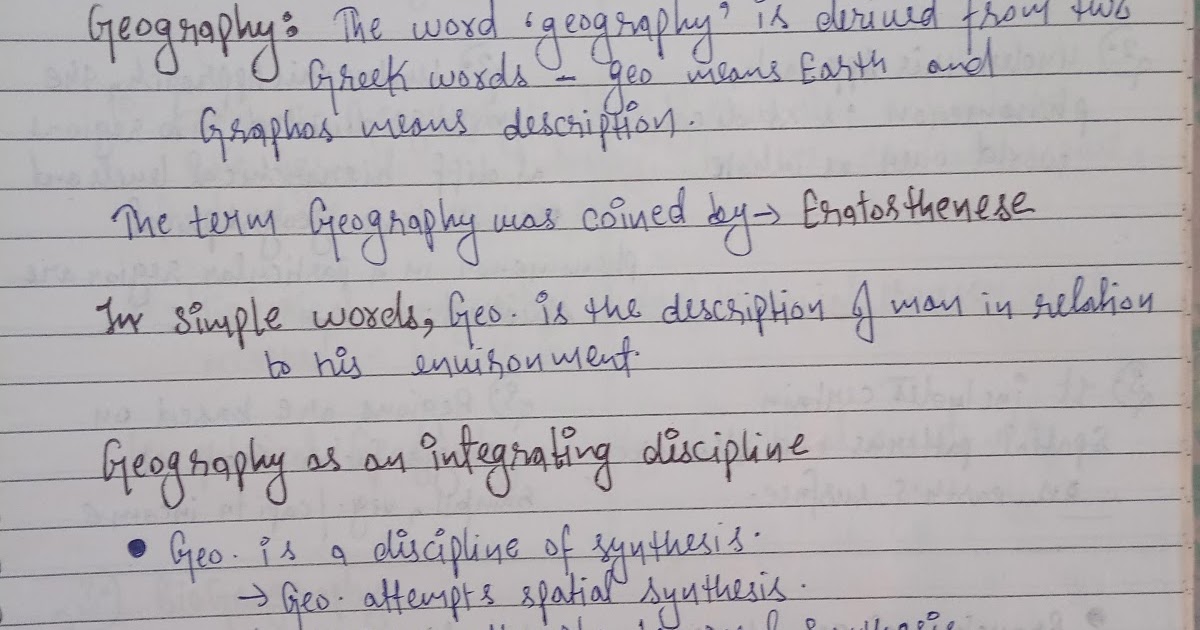 Geography: The word 'geography' is derived from two
Greek words - geo means Earth and
Graphos means description.
The term Geography was coined by → Eratosthenese
In simple words, Geo. is the description of man in relation
to his environment.
Geography as an integrating discipline
• Geo. is a discipline of synthesis.
→ Geo. attempts spatial synthesis.